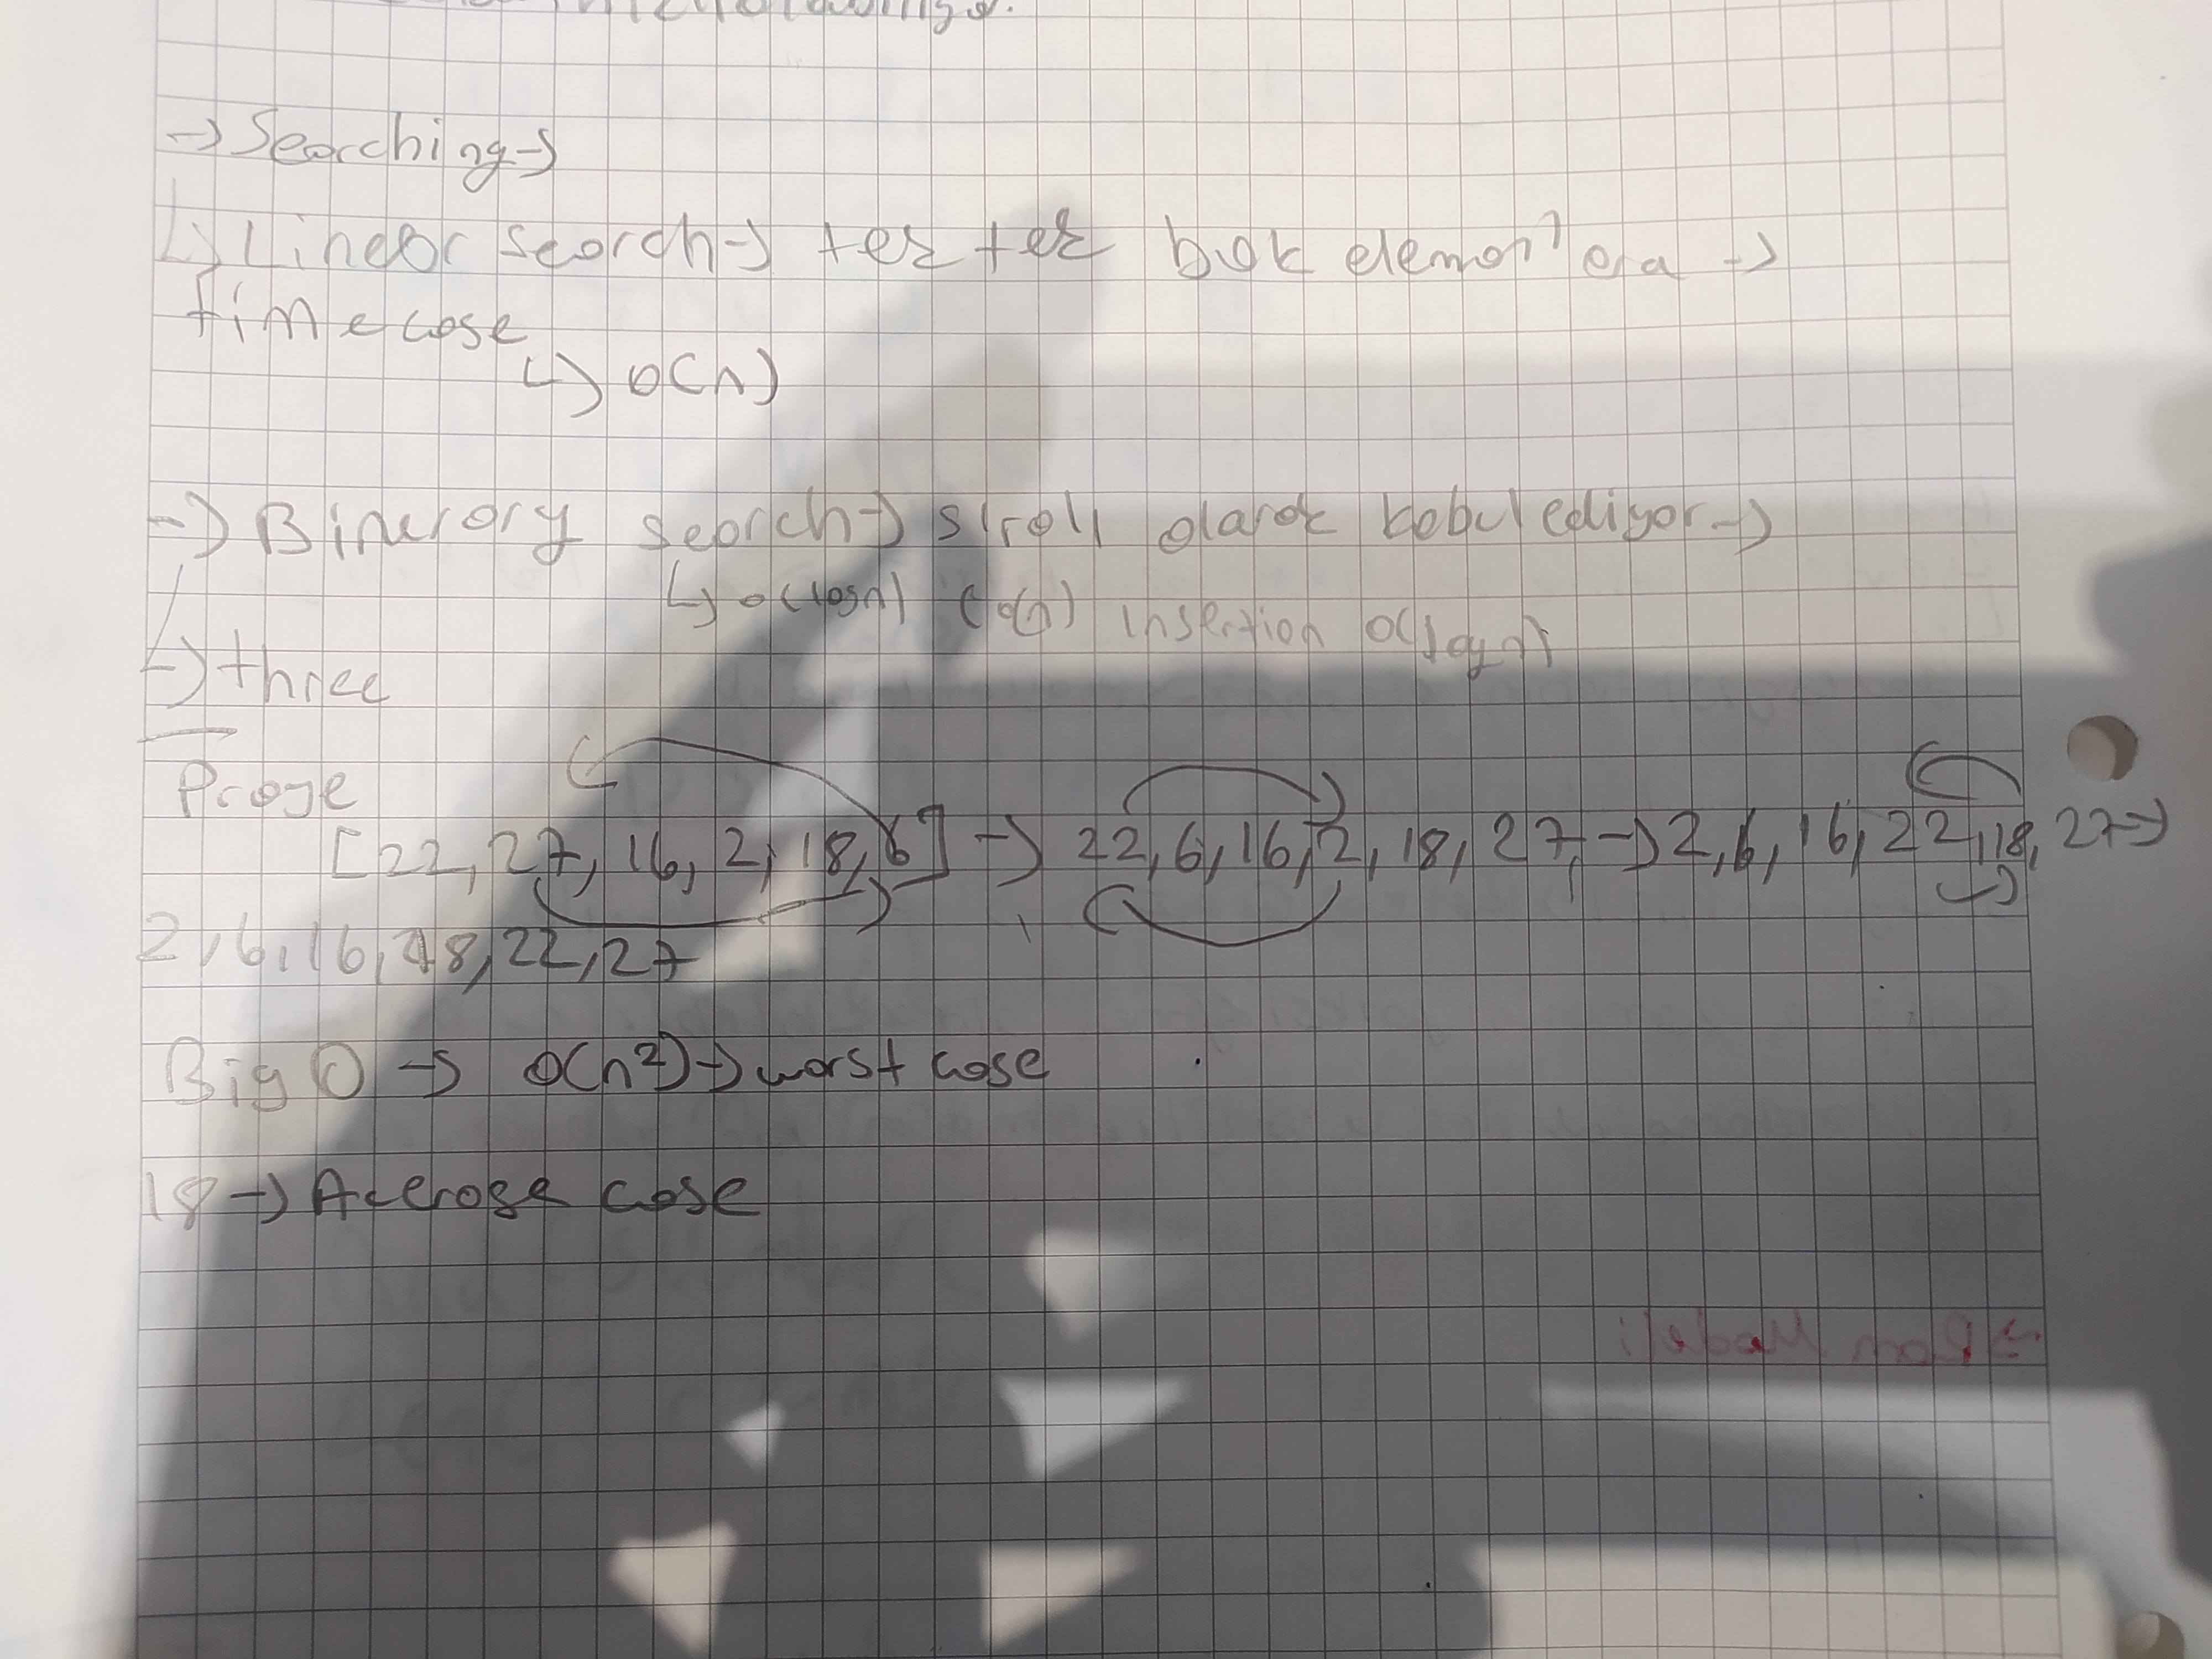 -> Searching ->
↳ Linear search -> ter ter bak eleman
time case
↳ O(n)
-> Binerary search -> sıralı olarak kabul ediyor ->
↳ O(logn) O(n) insertion O(logn)
-> three
Proje
[22, 27, 16, 2, 18, 6] -> 22, 6, 16, 2, 18, 27, -> 2, 6, 16, 22, 18, 27 ->
2, 6, 16, 18, 22, 27
Big O -> O(n²) -> worst case
18 -> Averose case
-> Ram Model: